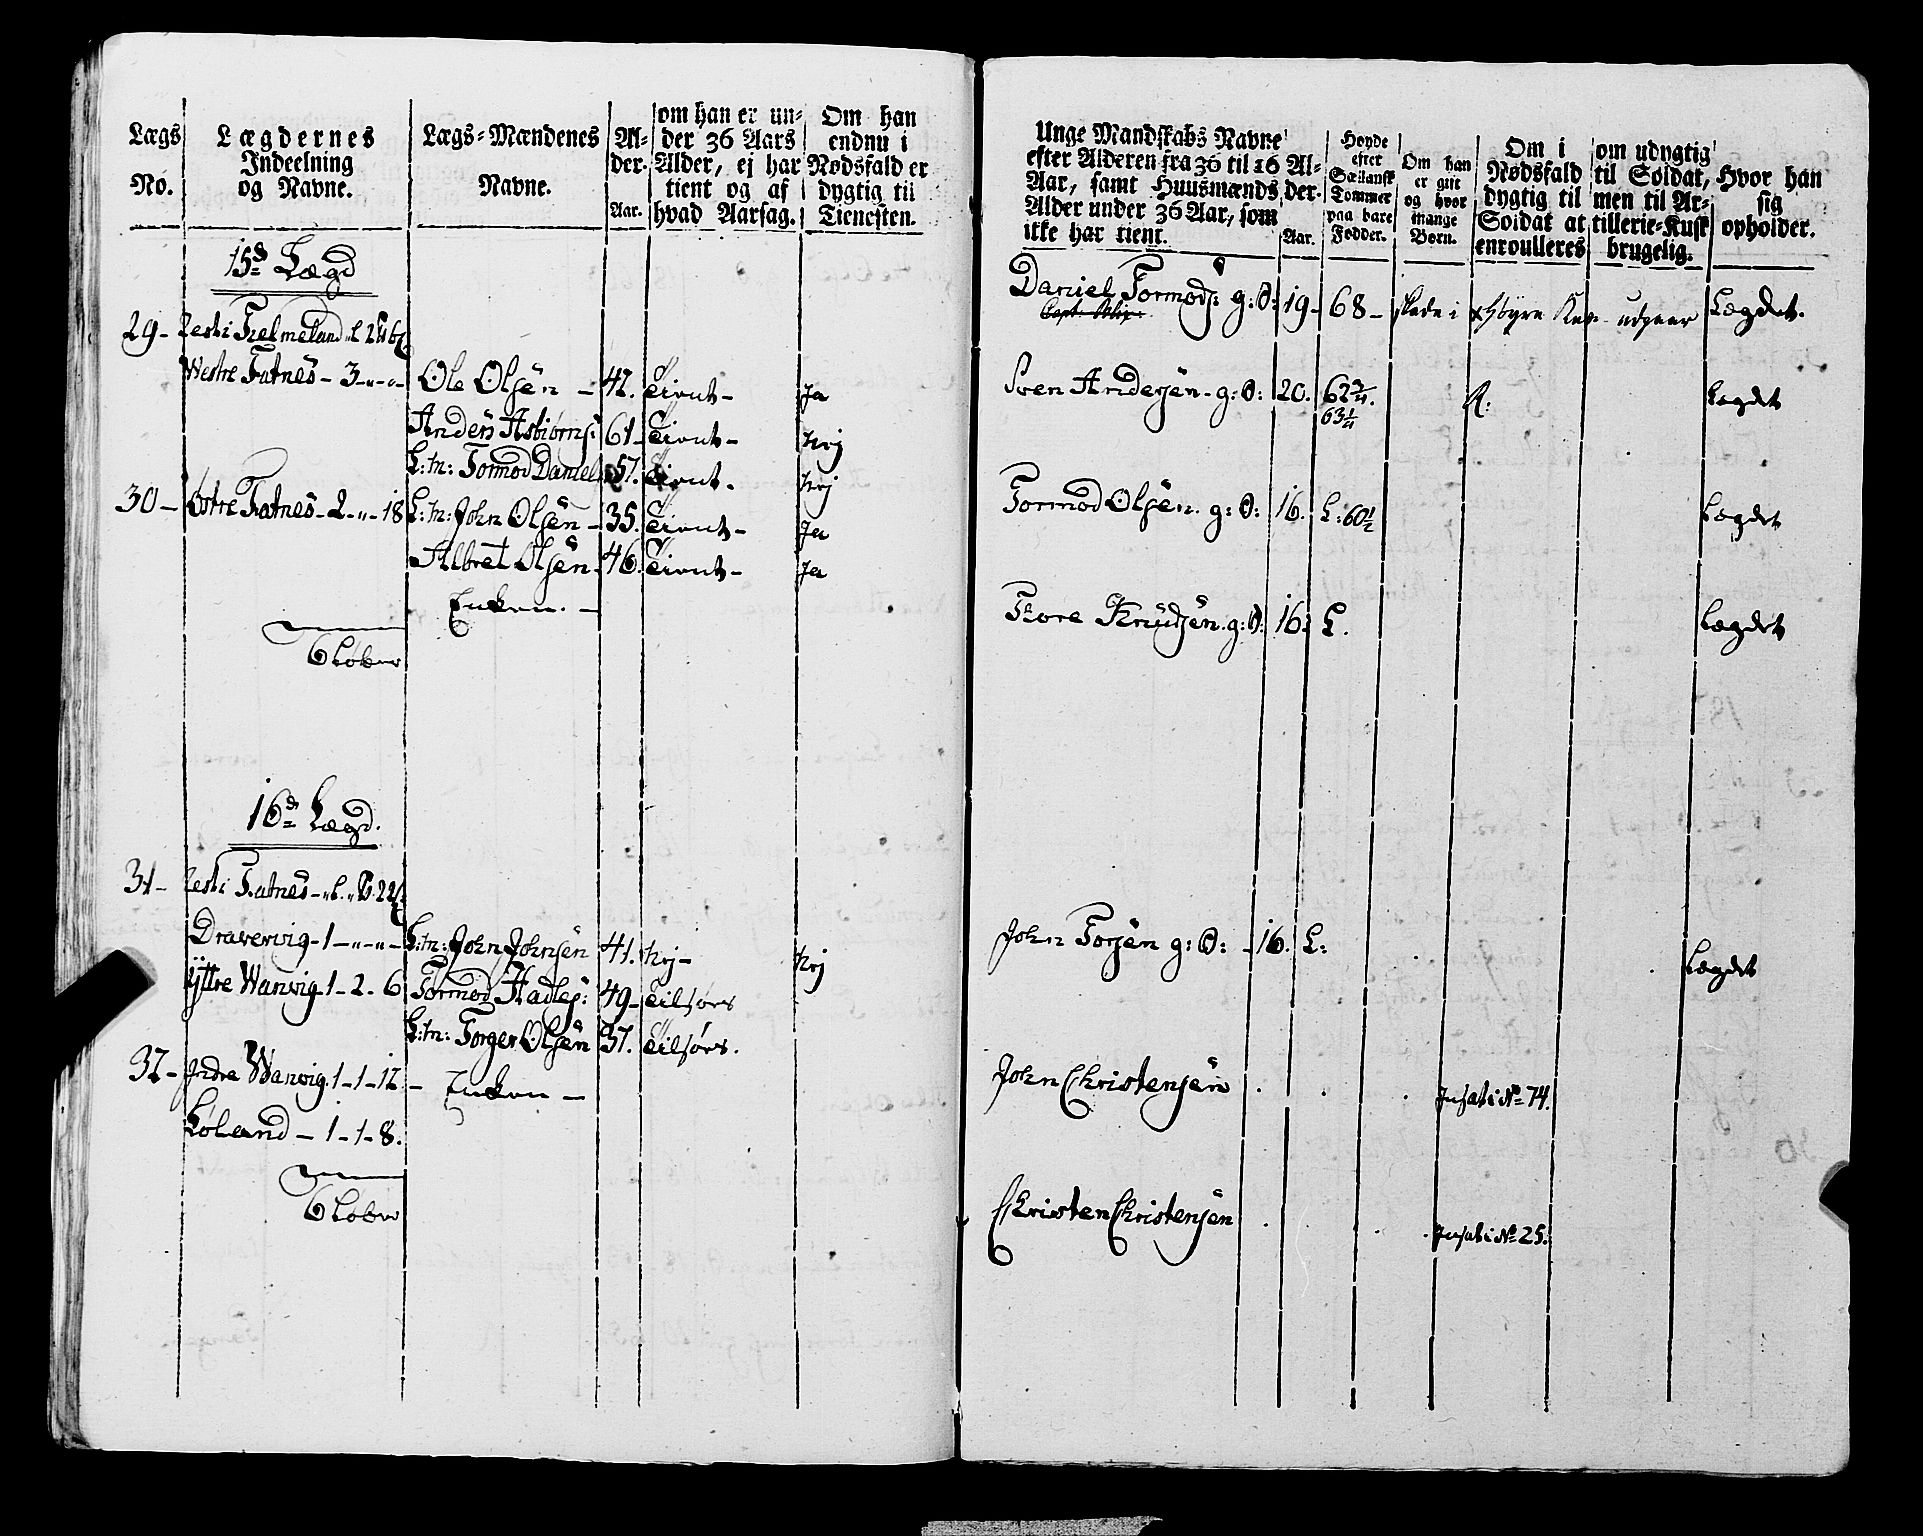 Lægs No.
Lægdernes Indeelning og Navne.
Lægs-Mændenes Navne.
Al-der. Aar.
om han er un-der 36 Aars Alder, ej har tient og af hvad Aarsag.
Om han endnu i Nødsfald er dygtig til Tienesten.
15de Lægd
29- Resti Tielmeland
Westre Fatnes - 3-"-"-
Ole Olsen - 42. Tient- Ja
Anders Asbiørns: 61- Tient- Nej
L:m: Tormod Daniels 57. Tient. Nej
30- Østre Fatnes-2-"-18 L:m: John Olsen - 35. Tient- Ja
Albret Olsen - 46. Tient- Ja
Enken. -
6 Løber
16de Lægd.
31- Resti Fatnes
Dravervig-1-"-"- L:m: John Johnsen 41. Nej- Nej
Yttre Wanvig-1-2-6 Tormod Hadles: 49- Tilførs
L:m: Torger Olsen 37. Tilførs.
32- Indre Wanvig.1-1-12.- Enken -
Løland - 1-1-8.
6 Løber
Unge Mandskabs Navne efter Alderen fra 36 til 16 Aar, samt Huusmænds Alder under 36 Aar, som ikke har tient.
Al-der. Aar.
Høyde efter Sællansk Tommer paa bare Fødder.
Om han er gift og hvor mange Børn.
Om i Nødsfald dygtig til Soldat at enroulleres
om udygtig til Soldat, men til Ar-tillerie-Kusk brugelig.
Hvor han sig opholder.
Daniel Tormods: g:S: 19- 68- Lægdet.
Sven Andersen- g:S: 20. 62 3/4. R: Lægdet
63 1/4
Tormod Olsen. g:S: 16. L:60 1/2 Lægdet
Tore Knudsen. g:S: 16. L. Lægdet
John Torsen g:S: -16. L: Lægdet
John Christensen Indsat i No 74.
Christen Christensen Indsat i No 25.